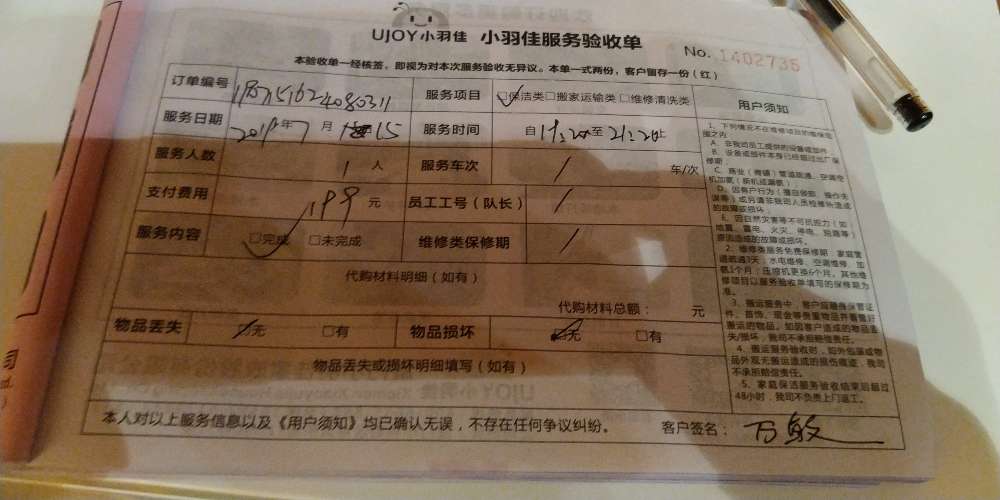 UJOY小羽佳 小羽佳服务验收单
No. 1402735
本验收单一经核签，即视为对本次服务验收无异议。本单一式两份，客户留存一份（红）
订单编号
服务项目 ☑保洁类 □搬家运输类 □维修清洗类
用户须知
服务日期 2019年7月 15
服务时间 自19:20至21:20止
服务人数 1 人
服务车次 / 车/次
支付费用 199 元
员工工号（队长） /
服务内容 ☑完成 □未完成
维修类保修期 /
代购材料明细（如有）
代购材料总额： 元
物品丢失 ☑无 □有
物品损坏 ☑无 □有
物品丢失或损坏明细填写（如有）
本人对以上服务信息以及《用户须知》均已确认无误，不存在任何争议纠纷。
客户签名： 万敏
1、下列情况不在维修项目的维保范
围之内
A、非我司员工提供的设备或部件。
B、设备或部件本身已经超过出厂保
修期；
E、因自然灾害等不可抗拒力（如
地震、雷电、火灾、停电、短路等）
原因造成的故障或损坏。
2、维修类服务免费保修期：家庭管
道疏通7天；水电维修、空调维修、加
氨1个月；压缩机更换6个月。其他维
修项目以服务验收单填写的保修期为
准。
3、搬运服务中，客户应随身保管证
件、首饰、现金等贵重物品并看管好
搬运的物品。如因客户造成的物品丢
失/损坏，我司不承担赔偿责任。
4、搬运服务验收时，如外包装或物
品外观无搬运造成的损伤痕迹，我司
不承担赔偿责任。
5、家庭保洁服务验收结束后超过
48小时，我司不负责上门返工。